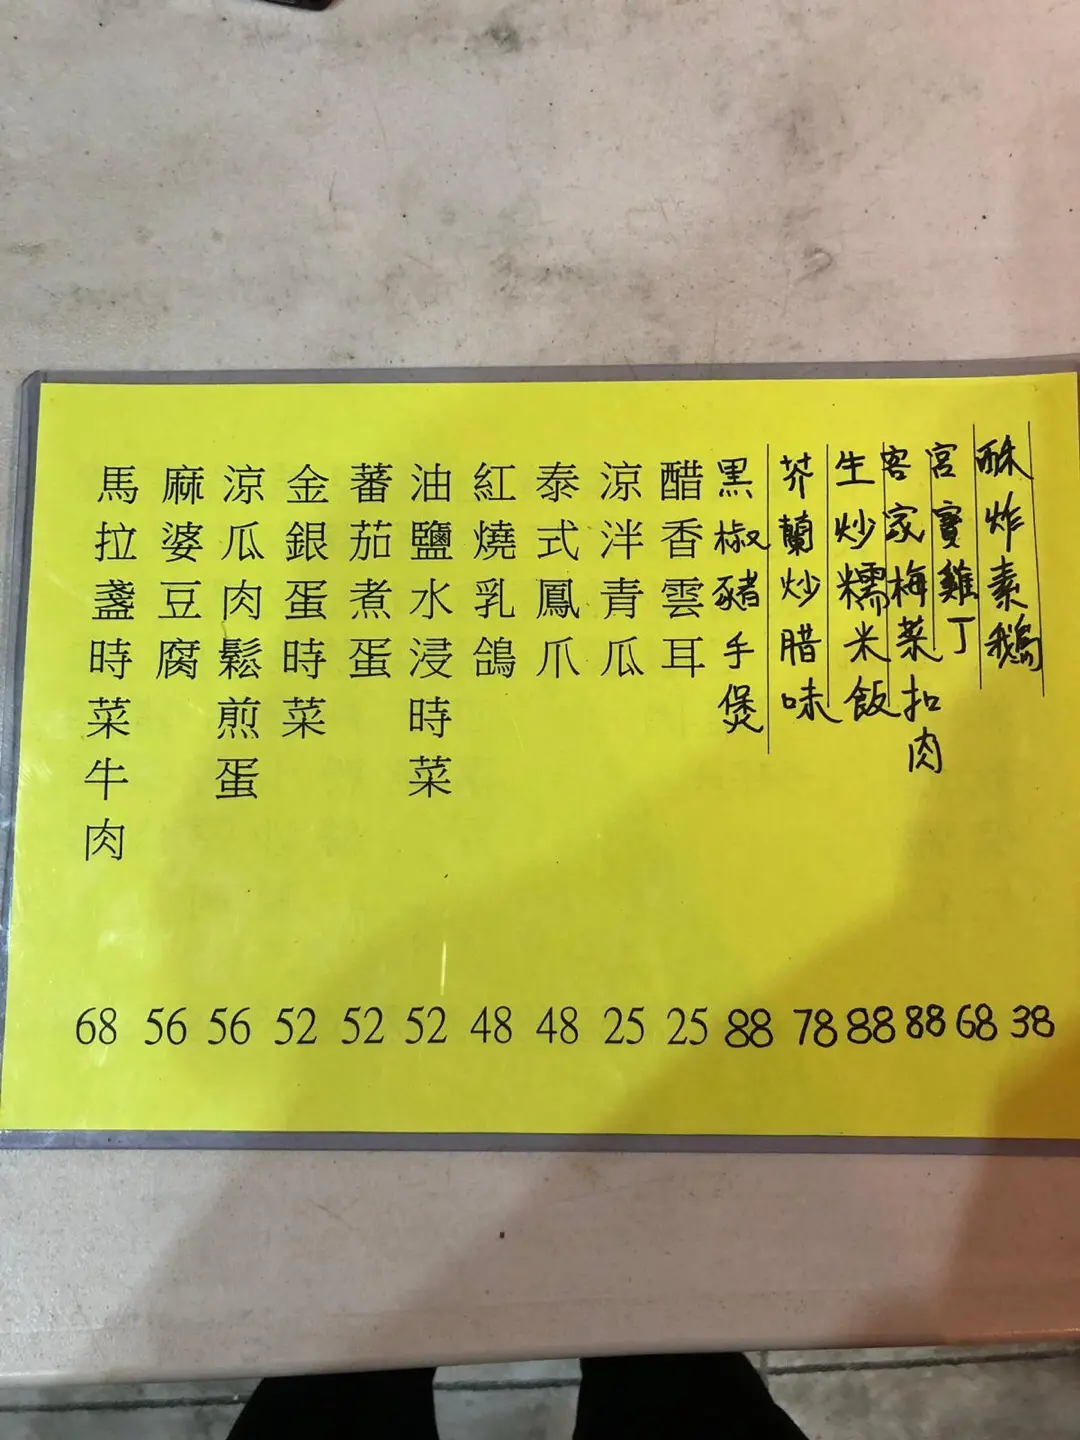 酥炸素鵝 38
宮寶雞丁 68
客家梅菜扣肉 88
生炒糯米飯 88
芥蘭炒腊味 78
黑椒豬手煲 88
醋香雲耳 25
涼泮青瓜 25
泰式鳳爪 48
紅燒乳鴿 48
油鹽水浸時菜 52
蕃茄煮蛋 52
金銀蛋時菜 52
涼瓜肉鬆煎蛋 56
麻婆豆腐 56
馬拉盞時菜牛肉 68